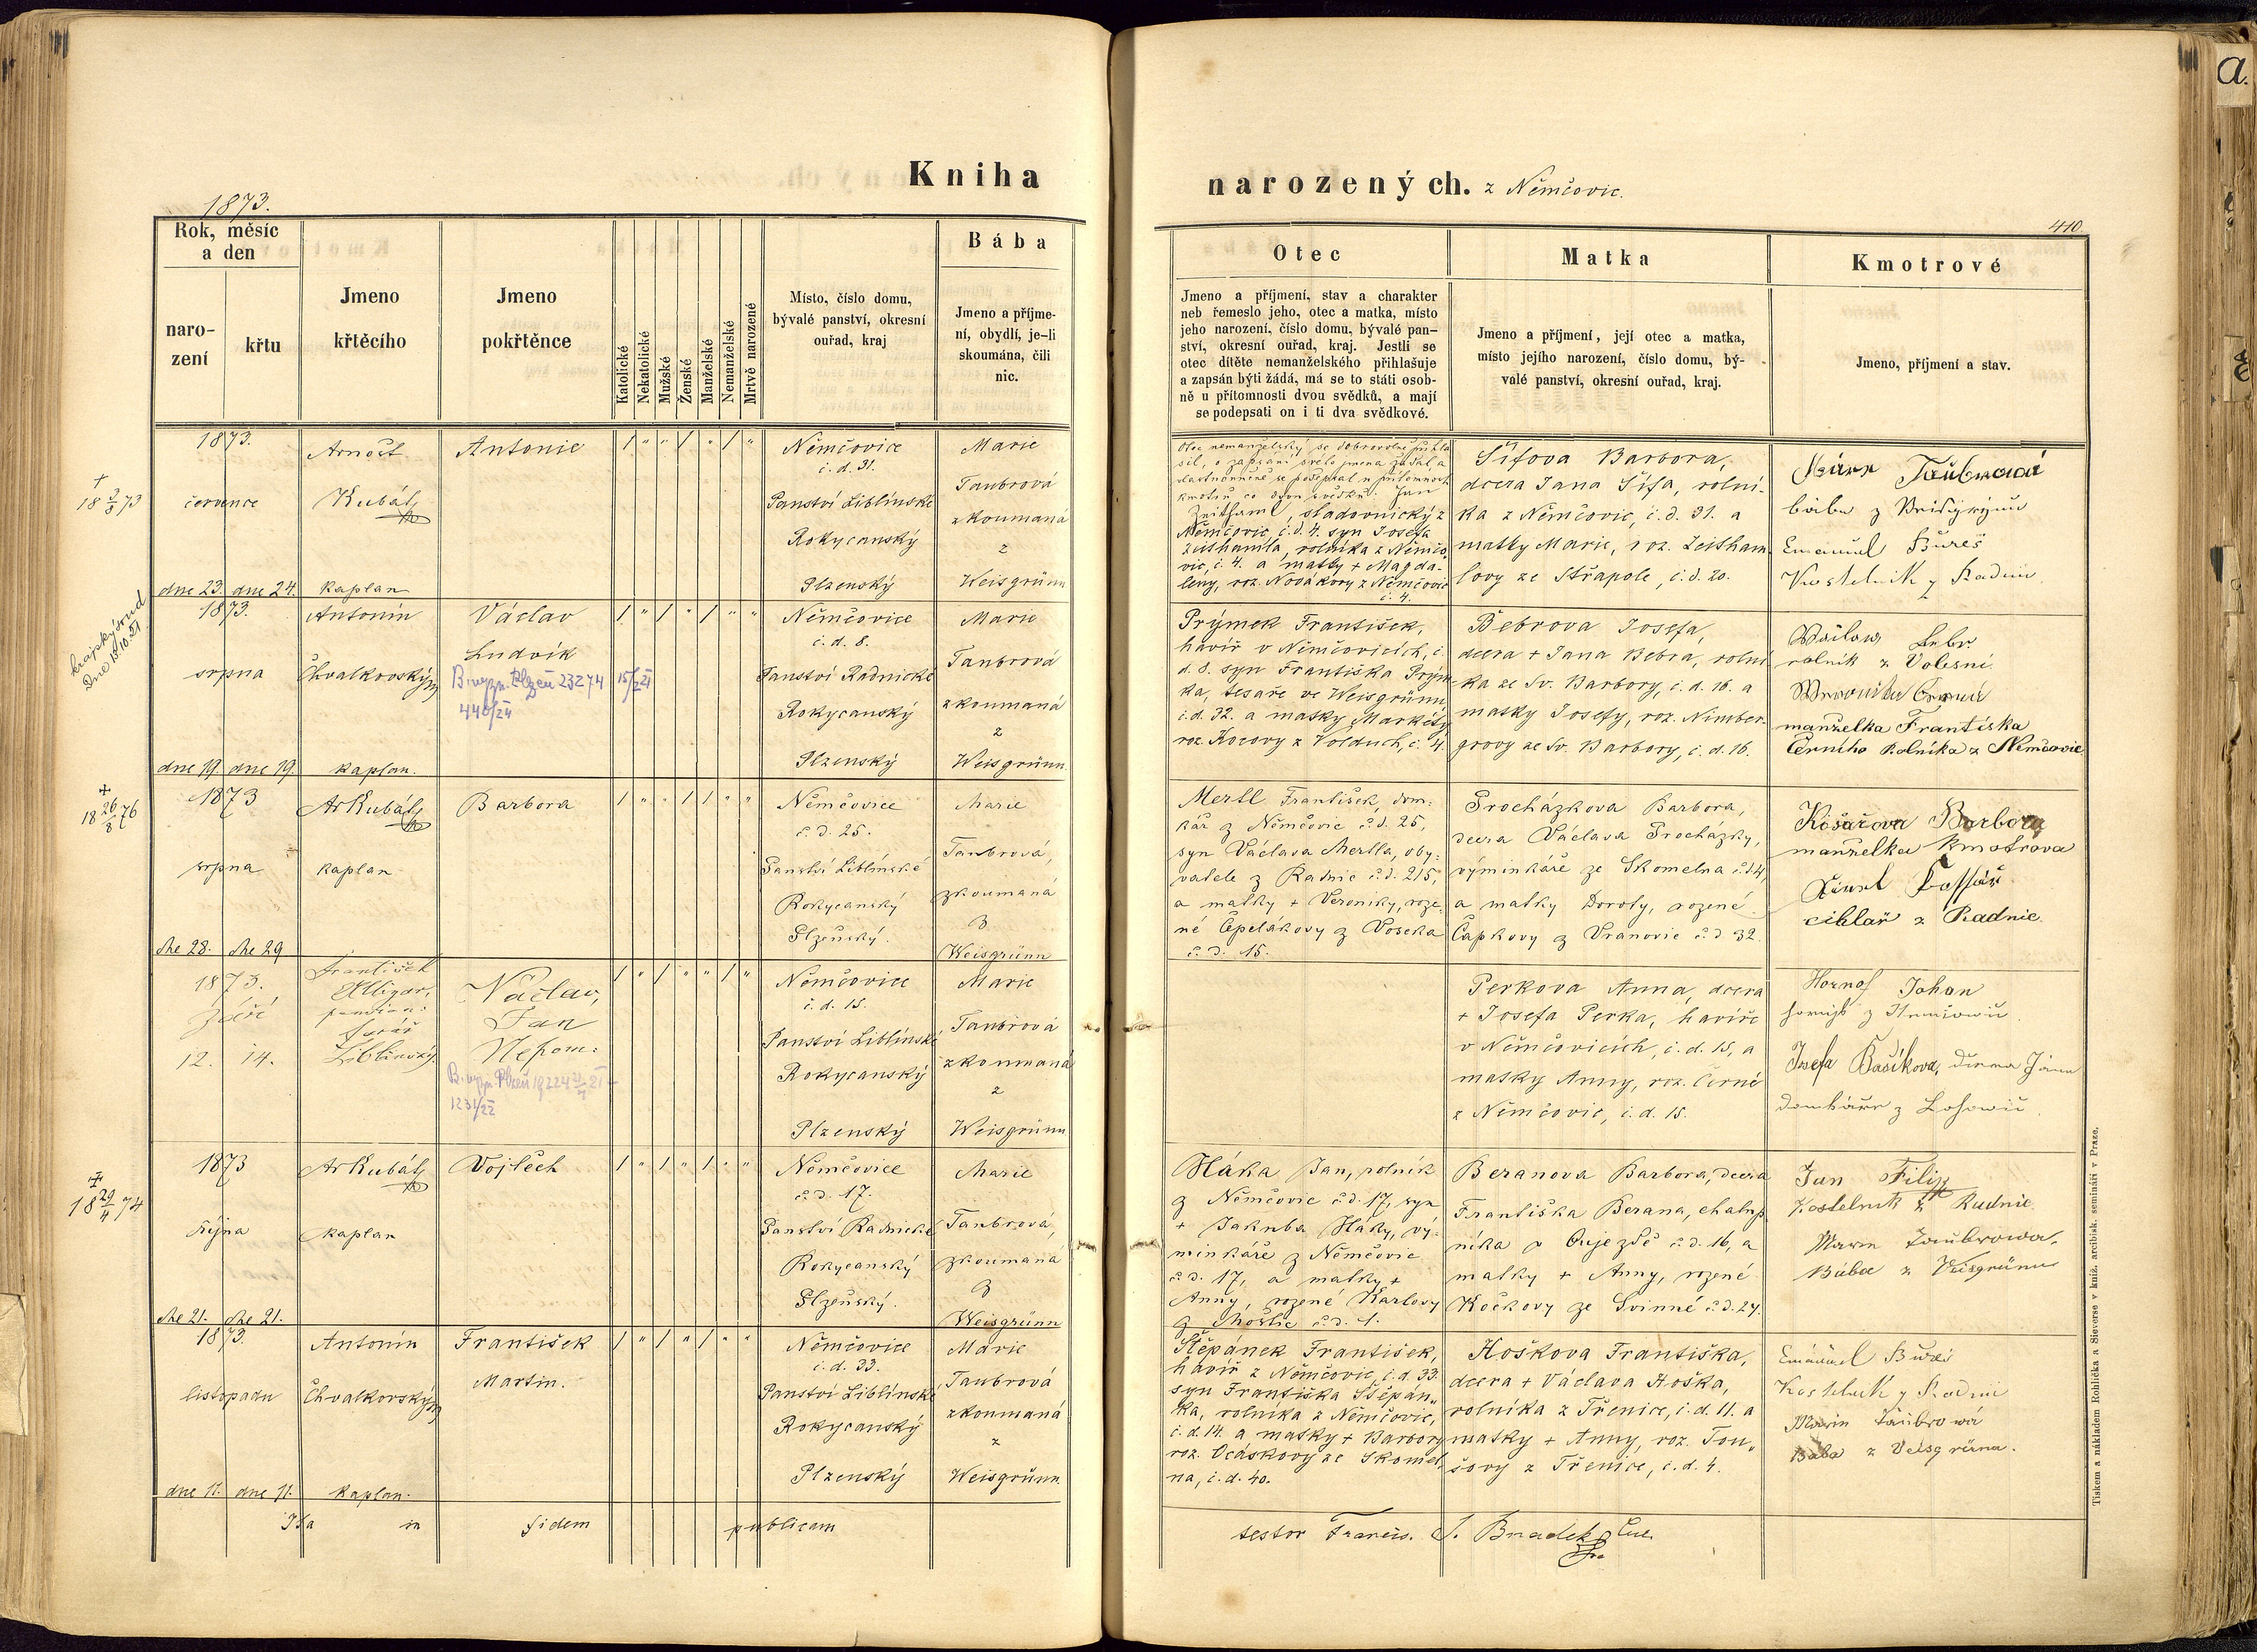 Kniha
narozených. z Němčovic.
1873.
410.
a.
Rok, měsíc
a den
naro-
zení
křtu
Jmeno
křtěcího
Jmeno
pokřtěnce
Katolické
Nekatolické
Mužské
Ženské
Manželské
Nemanželské
Mrtvě narozené
Místo, číslo domu,
bývalé panství, okresní
ouřad, kraj
Bába
Jmeno a příjme-
ní, obydlí, je-li
skoumána, čili
nic.
Otec
Jmeno a příjmení, stav a charakter
neb řemeslo jeho, otec a matka, místo
jeho narození, číslo domu, bývalé pan-
ství, okresní ouřad, kraj. Jestli se
otec dítěte nemanželského přihlašuje
a zapsán býti žádá, má se to státi osob-
ně u přítomnosti dvou svědků, a mají
se podepsati on i ti dva svědkové.
Matka
Jmeno a příjmení, její otec a matka,
místo jejího narození, číslo domu, bý-
valé panství, okresní ouřad, kraj.
Kmotrové
Jmeno, příjmení a stav.
+
18 3/8 73
1873.
července
dne 23. dne 24.
Arnošt
Kubát
kaplan
Antonie
Němčovice
č. d. 31.
Panství Liblínské
Rokycanský
Plzenský
Marie
Taubrová
zkoumaná
z
Weisgrünn
Otec nemanželský se dobrovolně přihlá
sil, o zapsání svého jmena žádal, a
vlastnoručně se podepsal u přítomnosti
kmotrů co dvou svědků. Jan
Zeithaml, sladovnický z
Němčovic, č. d. 4. syn Josefa
Zeithamla, rolníka z Němčo-
vic, č. 4. a matky + Magda-
leny, roz. Novákovy z Němčovic
č. 4.
Šífova Barbora,
dcera Jana Šífa, rolní-
ka z Němčovic, č. d. 31. a
matky Marie, roz. Zeitham-
lovy ze Střapole, č. d. 20.
Taubrová
bába z
Emanuel Bureš
Kostelník z Radnic
1873.
srpna
dne 19. dne 19.
Antonín
Chvalkovský
kaplan.
Václav
Ludvík
Plzeň 23274
440/24
Němčovice
č. d. 8.
Panství Radnické
Rokycanský
Plzenský
Marie
Taubrová
zkoumaná
z
Weisgrünn
Prýmek František,
havíř v Němčovicích, č.
d. 8. syn Františka Prým-
ka, tesaře ve Weisgrünu,
č. d. 32. a matky Markéty
roz. Kocovy z Volduch, č. 4.
Bebrova Josefa,
dcera + Jana Bebra, rolní-
ka ze Sv. Barbory, č. d. 16. a
matky Josefy, roz. Nimber-
grovy ze Sv. Barbory, č. d. 16.
rolník z Volesní.
manželka Františka
Černího Rolníka z Němčovic
+
18 26/8 76
1873
srpna
dne 28. dne 29
Ar Kubát
kaplan
Barbora
Němčovice
č. d. 25.
Panství Liblínské
Rokycanský
Plzeňský.
Marie
Taubrová,
zkoumaná
z
Weisgrünn
Mertl František, dom-
kář z Němčovic č. d. 25,
syn Václava Mertla, oby-
vatele z Radnic č. d. 215,
a matky + Veroniky, roze-
né Čpelákovy z Voseka
č. d. 15.
Procházkova Barbora,
dcera Václava Procházky,
výminkáře ze Skomelna č. d. 4,
a matky Doroty, rozené
Čapkovy z Vranovic č. d. 32.
Barbora
manželka Kmotrova
cihlař z Radnic
1873.
září
12. 14.
František
farář
Liblínský.
Václav,
Jan
Nepom:
1231/22
Němčovice
č. d. 15.
Panství Liblínské
Rokycanský
Plzenský
Marie
Taubrová
zkoumaná
z
Weisgrünn
Perkova Anna, dcera
+ Josefa Perka, havíře
v Němčovicích, č. d. 15, a
matky Anny, roz. Černé
z Němčovic, č. d. 15.
Johan
Josefa Bašíkova,
+
18 29/4 74
1873
října
dne 21. dne 21.
Ar Kubát
kaplan
Vojtěch
Němčovice
č. d. 17.
Panství Radnické
Rokycanský
Plzeňský.
Marie
Taubrová,
zkoumaná
z
Weisgrünn
Háka Jan, rolník
z Němčovic č. d. 17, syn
+ Jakuba Háky, vý-
minkáře z Němčovic
č. d. 17, a matky +
Anny, rozené Karlovy
č. d. 1.
Beranova Barbora, dcera
Františka Berana, chalup-
níka v Oujezdě č. d. 16, a
matky + Anny, rozené
Kočkovy ze Svinné č. d. 27.
Jan Filip
Kostelník z Radnic.
Marie Taubrowa.
Bába z Veisgrünu
1873.
listopadu
dne 11. dne 11.
Antonín
Chvalkovský
kaplan.
František
Martin.
Němčovice
č. d. 33.
Panství Liblínské
Rokycanský
Plzenský
Marie
Taubrová
zkoumaná
z
Weisgrünn
Štěpánek František,
havíř z Němčovic, č. d. 33.
syn Františka Štěpán-
ka, rolníka z Němčovic,
č. d. 14. a matky + Barbory
roz. Ocáskovy ze Skomel-
na, č. d. 40.
Hoškova Františka,
dcera + Václava Hoška,
rolníka z Třenice, č. d. 11. a
matky + Anny, roz. Tou-
šovy z Třenice, č. d. 4.
Emanuel Bureš
Kostelník z Radnic
Marie Taubrowá
Bába z Veisgrünu.
Ita in fidem publicam
testor Francis. S.
Tiskem a nákladem Rohlíčka a Sieverse v kníž. arcibisk. semináři v Praze.